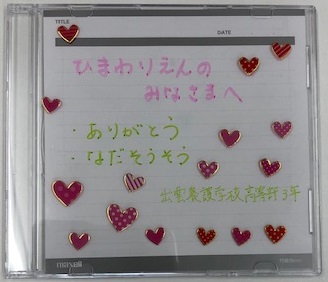 TITLE
DATE
ひまわりえんの
みなさまへ
・ありがとう
・なだそうそう
出雲養護学校高等部3年
maxell